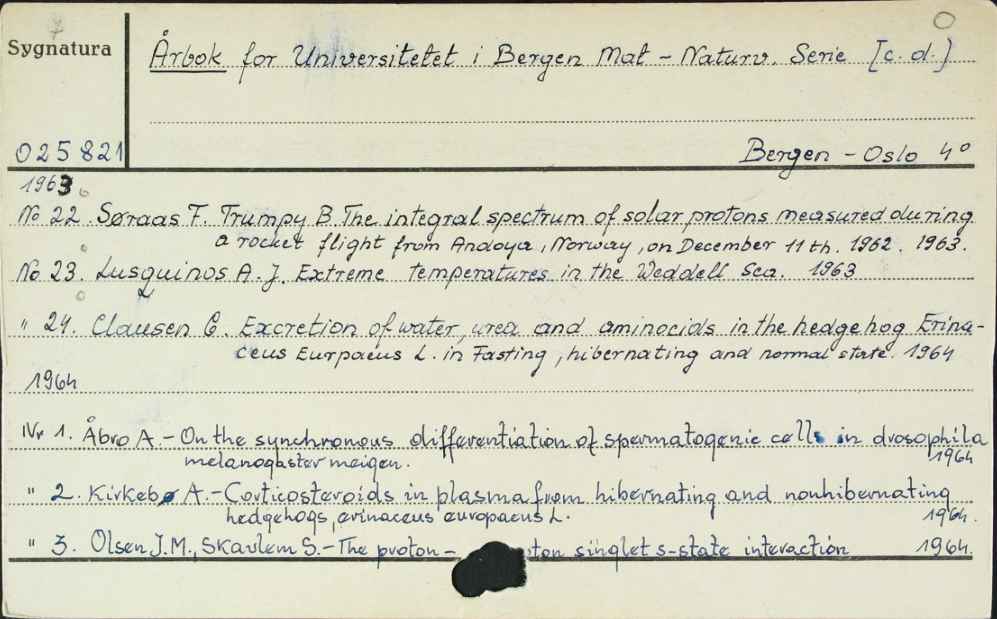 Sygnatura
Årbok for Universitetet i Bergen Mat - Naturv. Serie [c.d.]
025821
Bergen - Oslo 4°
1963
No 22. Søraas F. Trumpy B. The integral spectrum of solar protons measured during
a rocket flight from Andoya, Norway, on December 11 th. 1962. 1963.
No 23. Lusquinos A. J. Extreme temperatures in the Weddell Sea. 1963
" 24. Clausen G. Excretion of water, urea and aminocids in the hedgehog Erina-
ceus Eurpaeus L. in Fasting, hibernating and normal state. 1964
1964
Nr 1. Åbro A. - On the synchronous differentiation of spermatogenic cells in drosophila
melanogaster meigen. 1964
" 2. Kirkebø A. - Corticosteroids in plasma from hibernating and nonhibernating
hedgehogs, erinaceus europaeus L. 1964.
" 3. Olsen J.M., Skavlem S. - The proton - ton singlet s-state interaction 1964.